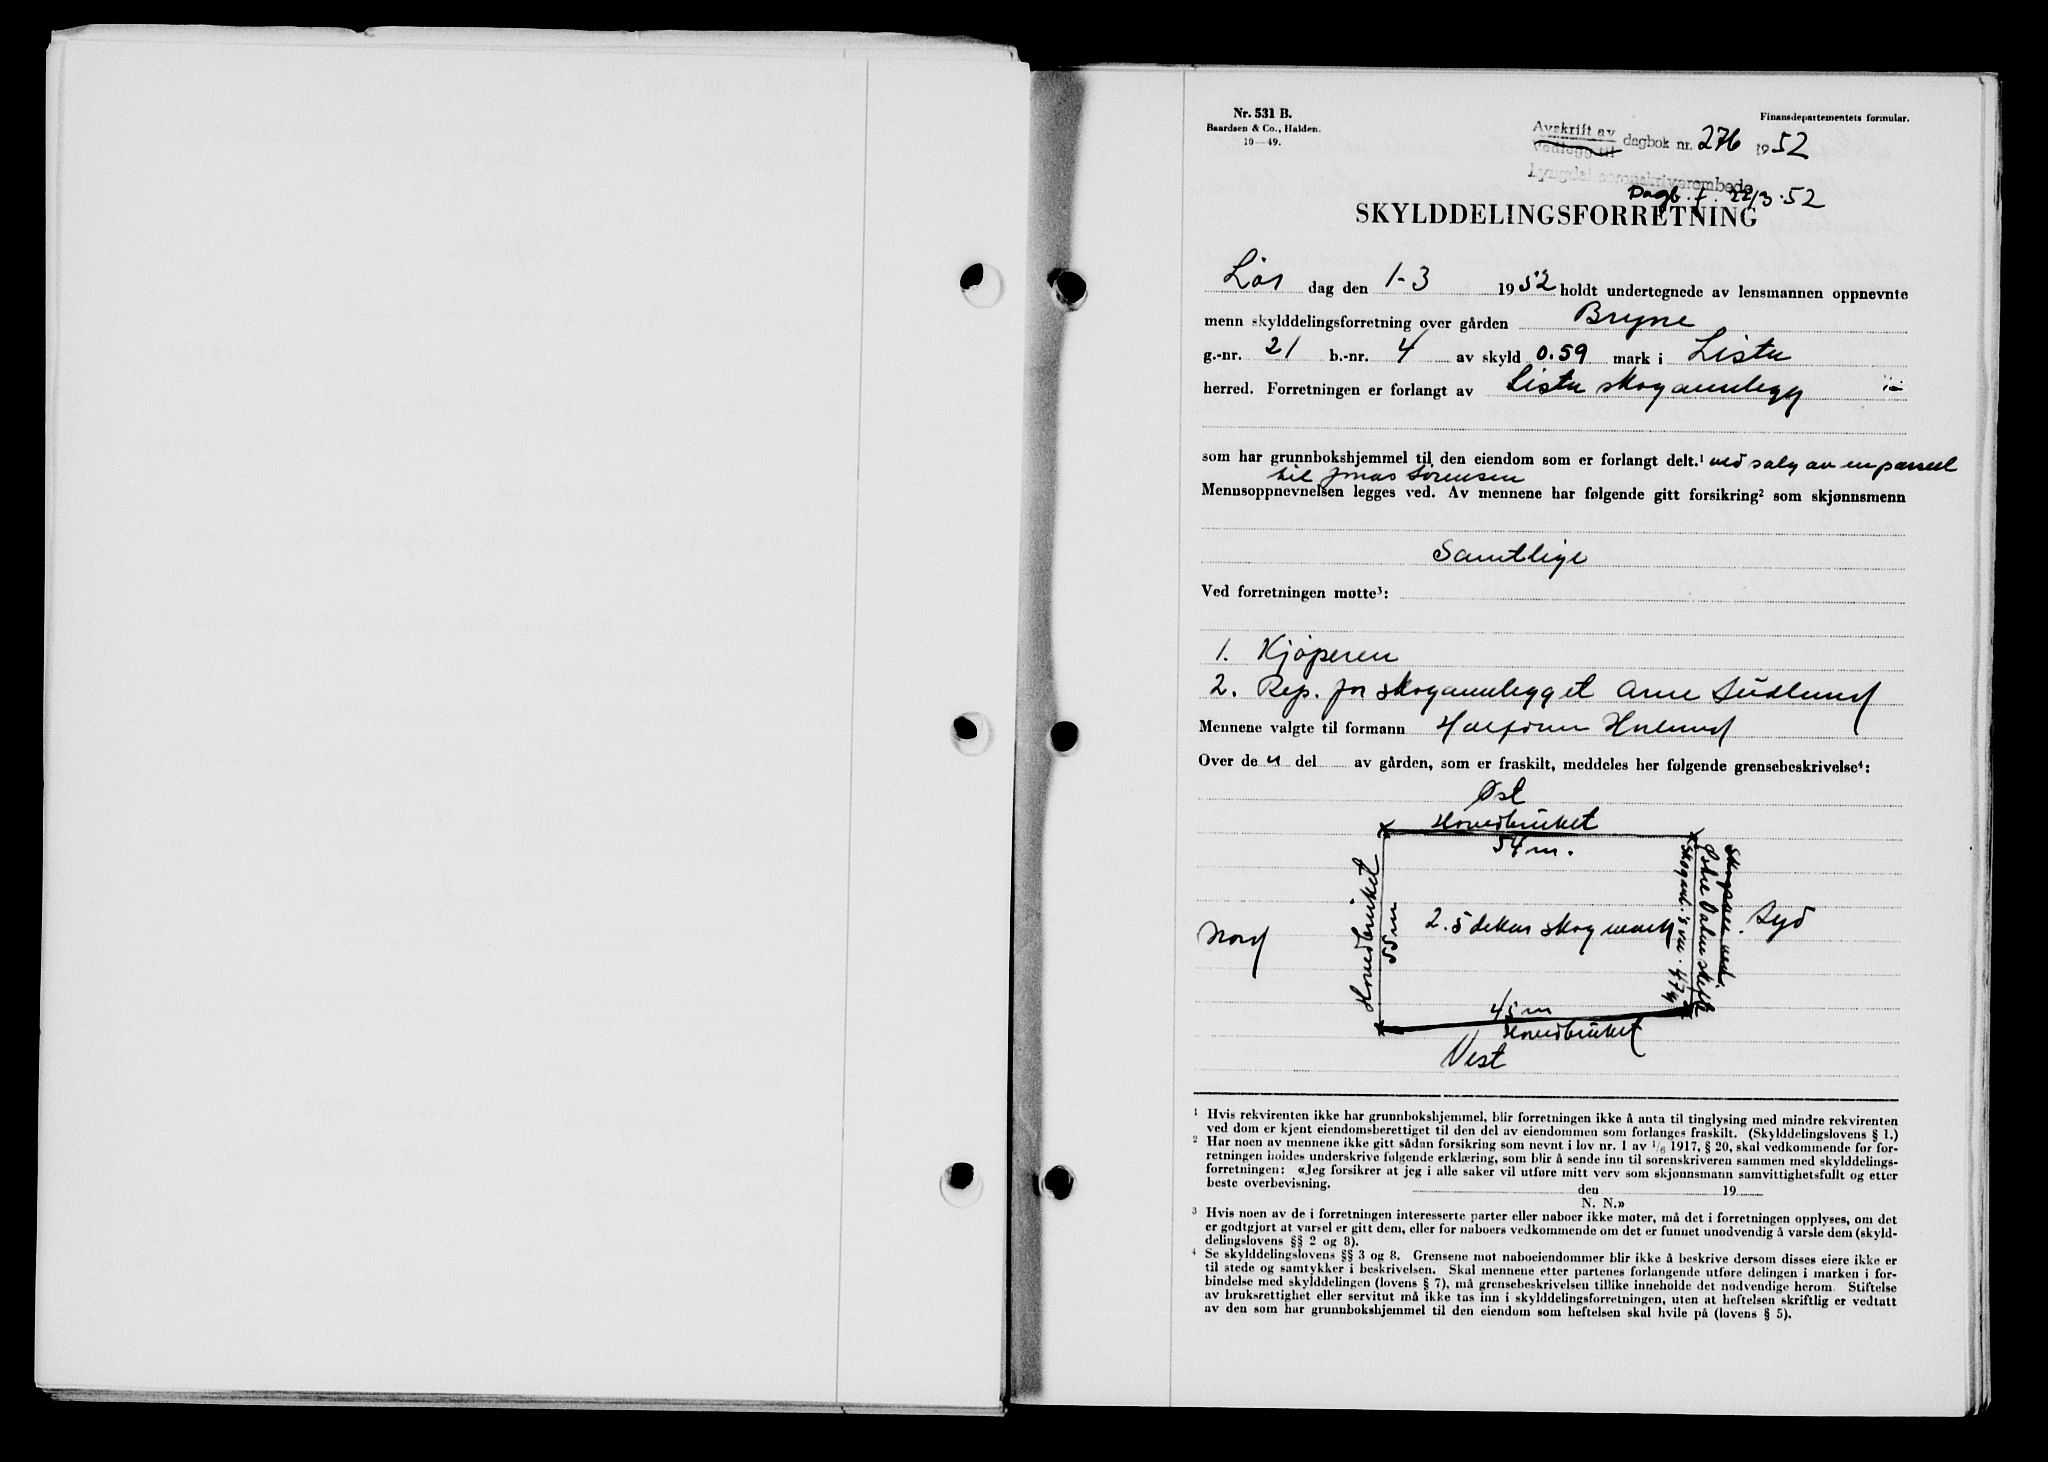 Nr. 531 B.
Baardsen & Co., Halden.
10—49.
Finansdepartementets formular.
Avskrift av
Vedlegg til
dagbok nr. 276 1952
Lyngdal sorenskriverembede
Dagb. f. 22/3-52
SKYLDDELINGSFORRETNING
Lör dag den 1-3 1952 holdt undertegnede av lensmannen oppnevnte
menn skylddelingsforretning over gården Bryne
g.-nr. 21 b.-nr. 4 av skyld 0.59 mark i Lista
herred. Forretningen er forlangt av Lista skogannlegg
som har grunnbokshjemmel til den eiendom som er forlangt delt.¹ ved salg av en parsell
til Jonas Sörensen
Mennsoppnevnelsen legges ved. Av mennene har følgende gitt forsikring² som skjønnsmenn
Samtlige
Ved forretningen møtte³:
1. Kjöperen
2. Rep. for skoganlegget Arne Südlund
Mennene valgte til formann
Over de n del av gården, som er fraskilt, meddeles her følgende grensebeskrivelse⁴:
Øst
Hovedbruket
54 m.
Nord
Hovedbruket
55 m
2.5 dekar skogmark
Skoganl.'s vn. 47 m
Østre Dalen skifte
Syd
45 m
Hovedbruket
Vest
¹ Hvis rekvirenten ikke har grunnbokshjemmel, blir forretningen ikke å anta til tinglysing med mindre rekvirenten
ved dom er kjent eiendomsberettiget til den del av eiendommen som forlanges fraskilt. (Skylddelingslovens § 1.)
² Har noen av mennene ikke gitt sådan forsikring som nevnt i lov nr. 1 av 1/6 1917, § 20, skal vedkommende før for-
retningen holdes underskrive følgende erklæring, som blir å sende inn til sorenskriveren sammen med skylddelings-
forretningen: «Jeg forsikrer at jeg i alle saker vil utføre mitt verv som skjønnsmann samvittighetsfullt og etter
beste overbevisning.
den 19
N. N.»
³ Hvis noen av de i forretningen interesserte parter eller naboer ikke møter, må det i forretningen opplyses, om det
er godtgjort at varsel er gitt dem, eller for naboers vedkommende om det er funnet unødvendig å varsle dem (skyld-
delingslovens §§ 2 og 8).
⁴ Se skylddelingslovens §§ 3 og 8. Grensene mot naboeiendommer blir ikke å beskrive dersom disses eiere ikke er
til stede og samtykker i beskrivelsen. Skal mennene etter partenes forlangende utføre delingen i marken i for-
bindelse med skylddelingen (lovens § 7), må grensebeskrivelsen tillike inneholde det nødvendige herom. Stiftelse
av bruksrettighet eller servitut må ikke tas inn i skylddelingsforretningen, uten at heftelsen skriftlig er vedtatt
av den som har grunnbokshjemmel til den eiendom som heftelsen skal hvile på (lovens § 5).